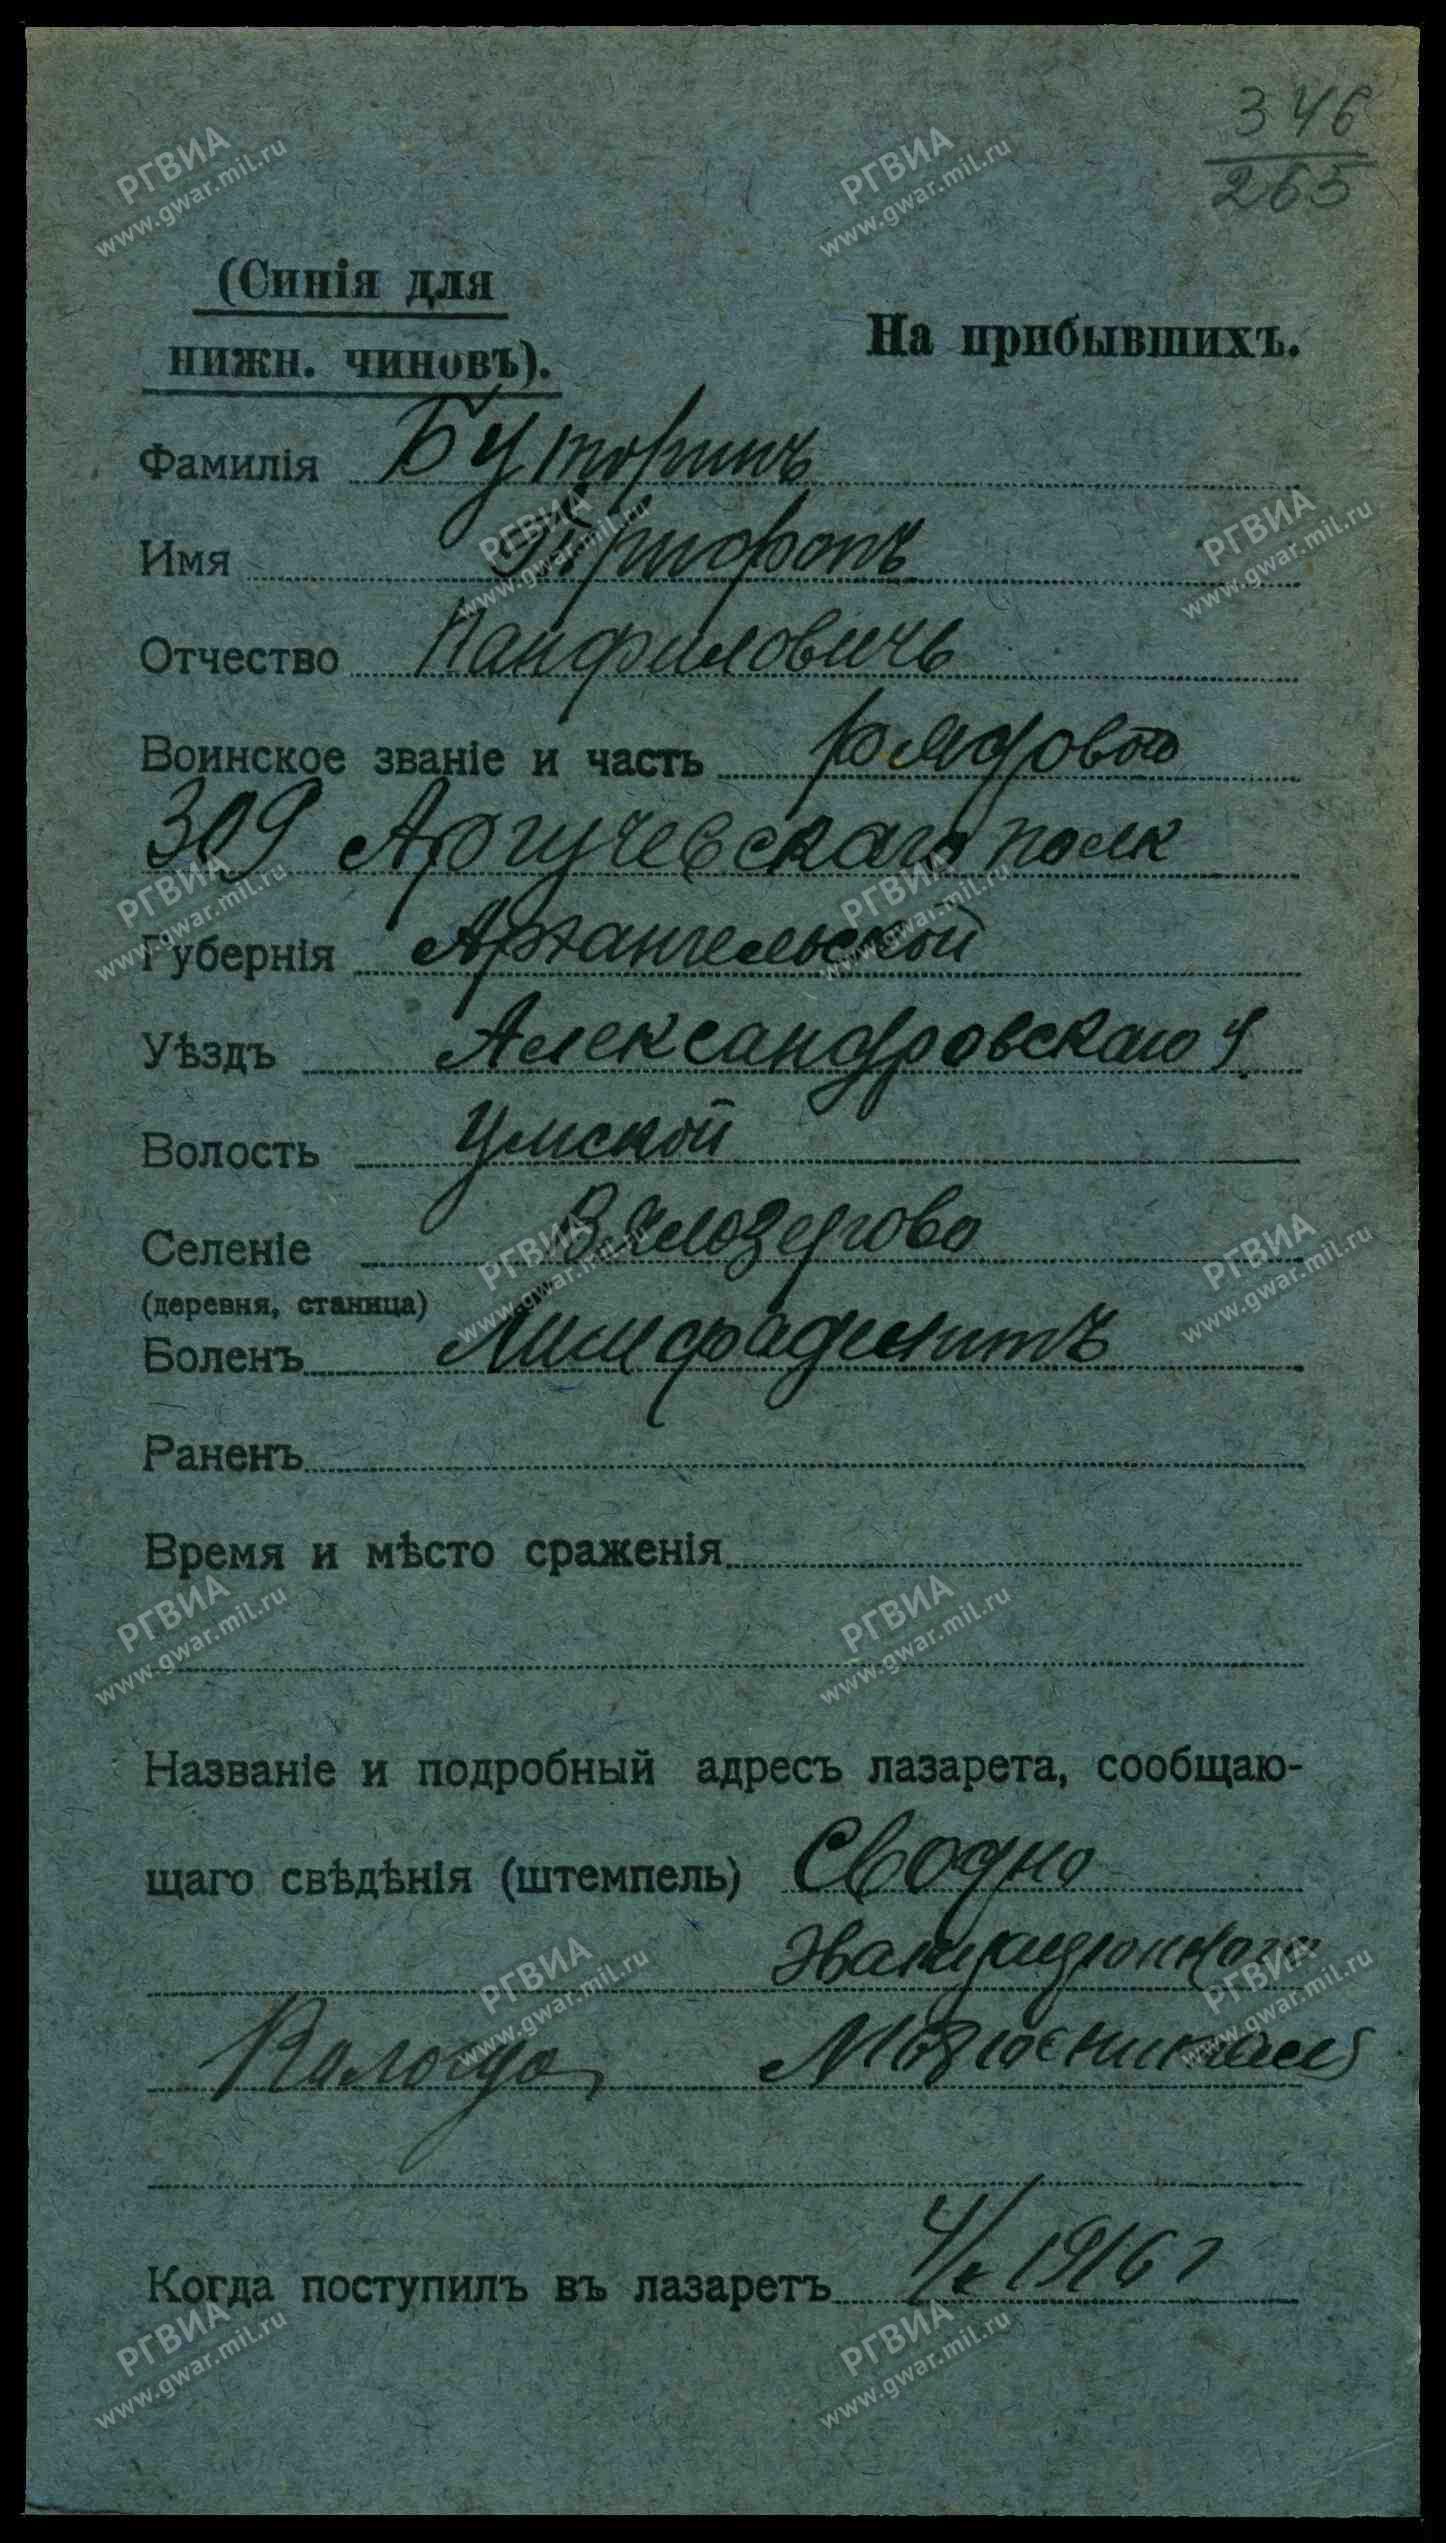 346
265
(Синія для
нижн. чиновъ).
На прибывшихъ.
Фамилія Буторинъ
Имя Трифонъ
Отчество Панфиловичъ
Воинское званіе и часть рядовой
309 полк
Губернія Архангельской
Уѣздъ Александровскаго у.
Волость Умской
Селеніе Вялозерово
(деревня, станица)
Боленъ Лимфаденитъ
Раненъ
Время и мѣсто сраженія
Названіе и подробный адресъ лазарета, сообщаю-
щаго свѣдѣнія (штемпель) Сводно
Эвакуаціоннаго
Вологда
Когда поступилъ въ лазаретъ 4/х 1916 г
РГВИА
www.gwar.mil.ru